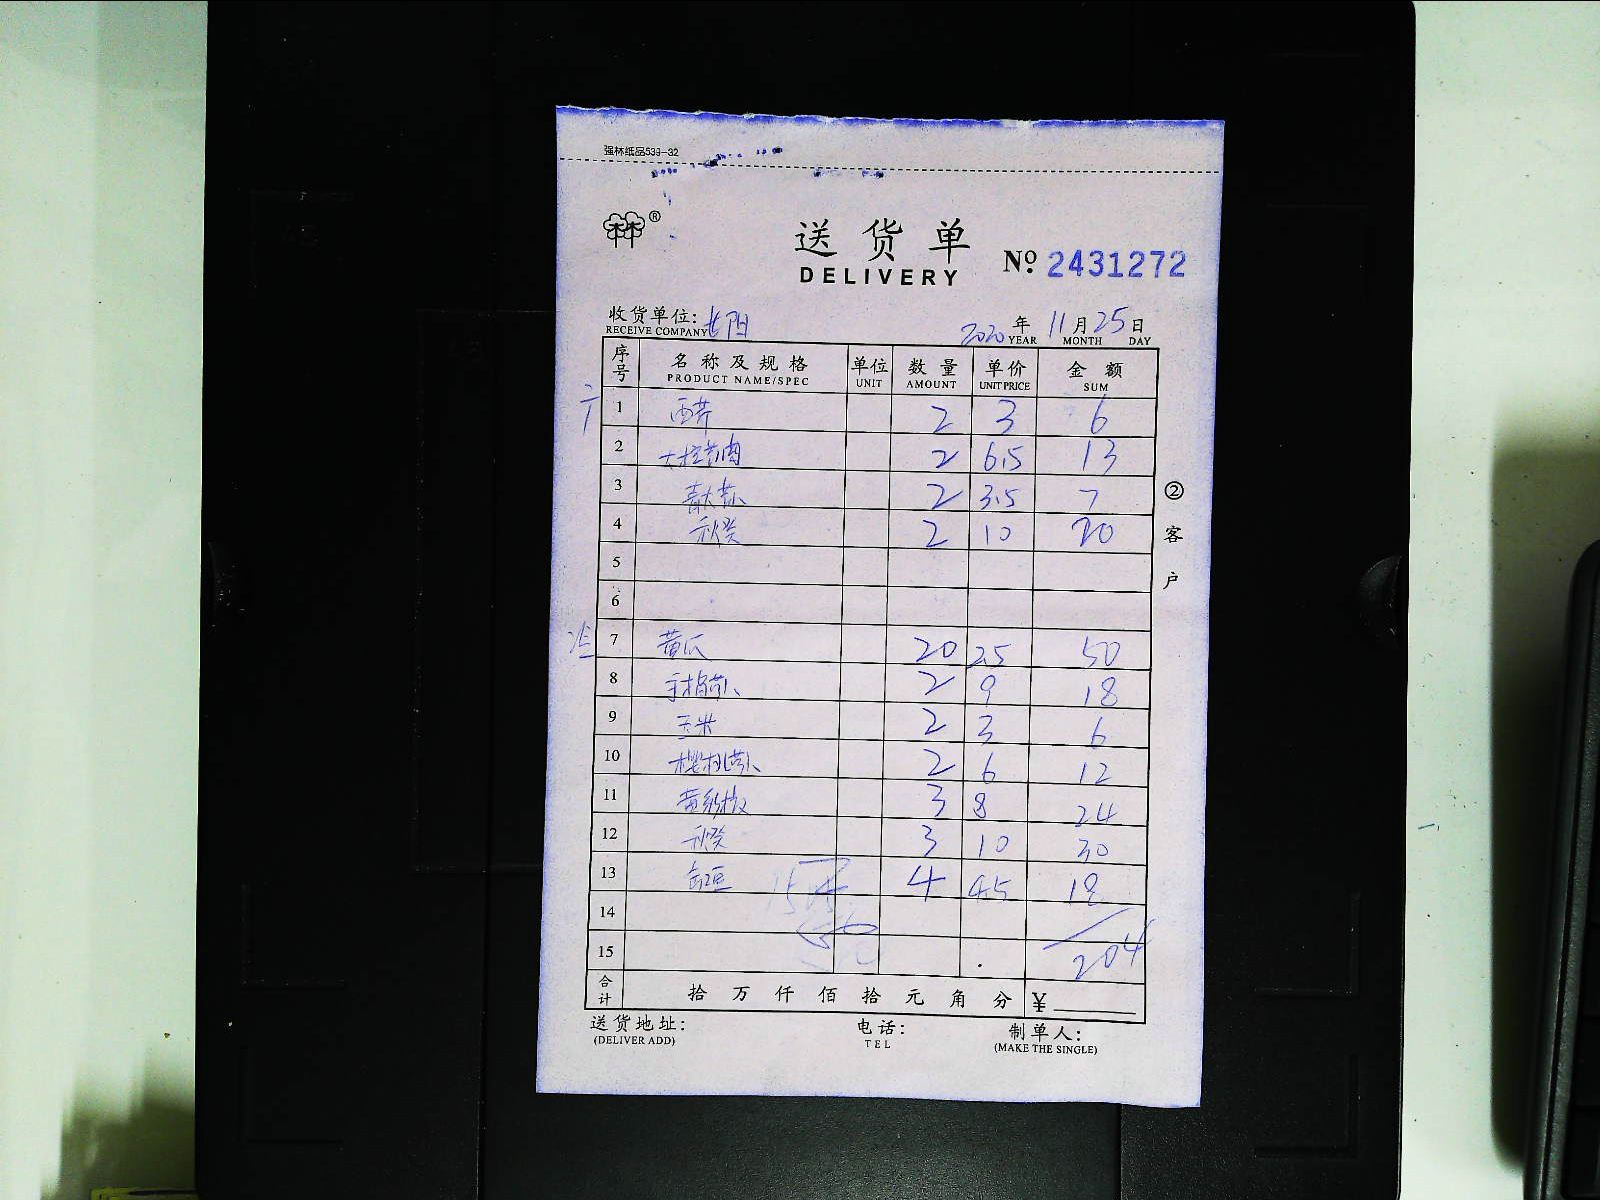 强林纸品533-32
® 送货单 № 2431272
DELIVERY
收货单位: 2020年11月25日
RECEIVE COMPANY YEAR MONTH DAY
序号 名称及规格 单位 数量 单价 金额
PRODUCT NAME/SPEC UNIT AMOUNT UNIT PRICE SUM
1 西芹 2 3 6
2 2 6.5 13
3 2 3.5 7
4 秋葵 2 10 20
5
6
7 黄瓜 20 2.5 50
8 手指萝卜 2 9 18
9 玉米 2 3 6
10 樱桃萝卜 2 6 12
11 3 8 24
12 秋葵 3 10 30
13 豇豆 4 4.5 18
14
15 204
合计 拾万仟佰拾元角分 ¥
送货地址: 电话: 制单人:
(DELIVER ADD) TEL (MAKE THE SINGLE)
② 客户